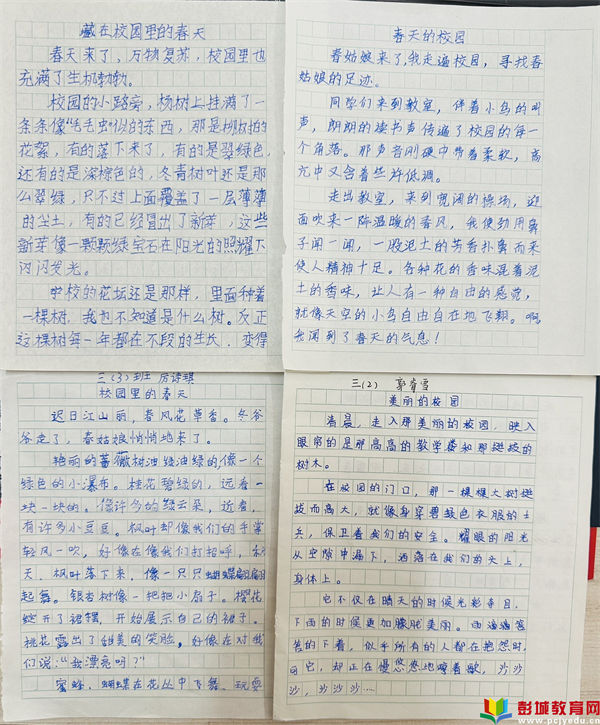 藏在校园里的春天
春天来了、万物复苏,校园里也
充满了生机勃勃。
校园的小路旁,杨树上挂满了一
条条像“毛毛虫”似的东西,那是杨树的
花絮,有的落下来了,有的是翠绿色,
还有的是深棕色的,冬青树叶还是那
么翠绿,只不过上面覆盖了一层薄薄
的尘土,有的已经冒出了新芽,这些
新芽像一颗颗绿宝石在阳光的照耀下
闪闪发光。
学校的花坛还是那样,里面种着
一棵树,我也不知道是什么树。反正
这棵树每一年都在不段的生长,变得
春天的校园
春姑娘来了,我走遍校园,寻找春
姑娘的足迹。
同学们来到教室,伴着小鸟的叫
声,朗朗的读书声传遍了校园的每一
个角落。那声音刚硬中带着柔软,高
亢中又含着些许低调。
走出教室,来到宽阔的操场,迎
面吹来一阵温暖的春风,我使劲用鼻
子闻一闻,一股泥土的芳香扑鼻而来
使人精神十足。各种花的香味混着泥
土的香味,让人有一种自由的感觉,
就像天空的小鸟自由自在地飞翔。啊,
我闻到了春天的气息!
三(3)班 房诗琪
校园里的春天
迟日江山丽,春风花草香。冬爷
爷走了,春姑娘悄悄地来了。
艳丽的蔷薇树油绿油绿的,像一个
绿色的小瀑布。桂花碧绿的,远看一
块一块的。像许多的绿云朵,近看,
有许多小豆豆。枫叶却像我们的手掌
轻风一吹,好像在像我们打招呼,
天,枫叶落下来,像一只只蝴蝶翩翩
起舞。银杏树像一把把小扇子。樱花
绽开了裙摆,开始展示自己的裙子。
桃花露出了甜美的笑脸,好像在对我
们说:“我漂亮吗?”
蜜蜂、蝴蝶在花丛中飞舞、玩耍
三(2) 郭育雪
美丽的校园
清晨,走入那美丽的校园,映入
眼帘的是那高高的教学楼和那挺拔的
树木。
在校园的门口,那一棵棵大树挺
拔而高大,就像身穿碧绿色衣服的士
兵,保卫着我们的安全。耀眼的阳光
从空隙中漏下,洒落在我们的头上,
身体上。
它不仅在晴天的时候光彩夺目,
下雨的时候更加朦胧美丽。雨滴滴答
答的下着,似乎所有的人都在抱怨时,
它,却正在慢悠悠地哼着歌,沙沙
沙,沙沙沙…
彭城教育网
www.pcjyedu.cn